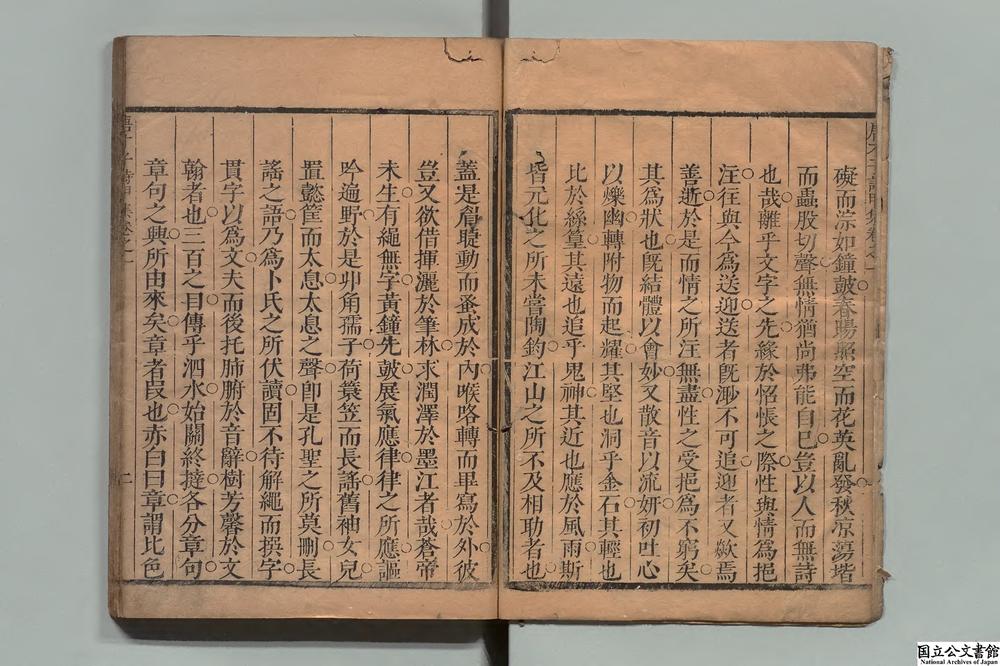 礙而淙如鐘皷春暘照空而花英亂發秋凉蕩堦
而蟲股切聲無情猶尚弗能自已豈以人而無詩
也哉離乎文字之先緣於怊悵之際性與情為挹
注往與今為送迎送者既渺不可追迎者又歘焉
善逝於是而情之所注無盡性之受挹為不窮矣
其為狀也既結體以會妙又散音以流妍初吐心
以爍幽轉附物而起耀其堅也洞乎金石其輕也
比於絲篁其遠也追乎鬼神其近也應於風雨斯
皆元化之所未嘗陶鈞江山之所不及相助者也
蓋是眉睫動而蚤成於内喉咯轉而畢寫於外彼
豈又欲借揮灑於筆林求潤澤於墨江者哉蒼帝
未生有繩無字黃鐘先皷展氣應律律之所應謳
吟遍野於是丱角孺子荷簑笠而長謠舊袖女兒
置懿筐而太息太息之聲卽是孔聖之所莫刪長
謠之語乃為卜氏之所伏讀固不待解繩而撰字
貫字以為文夫而後托肺腑於音辭樹芳馨於文
翰者也三百之目傳乎泗水始關終撻各分章句
章句之興所由來矣章者段也亦白曰章謂比色
二
国立公文書館
National Archives of Japan